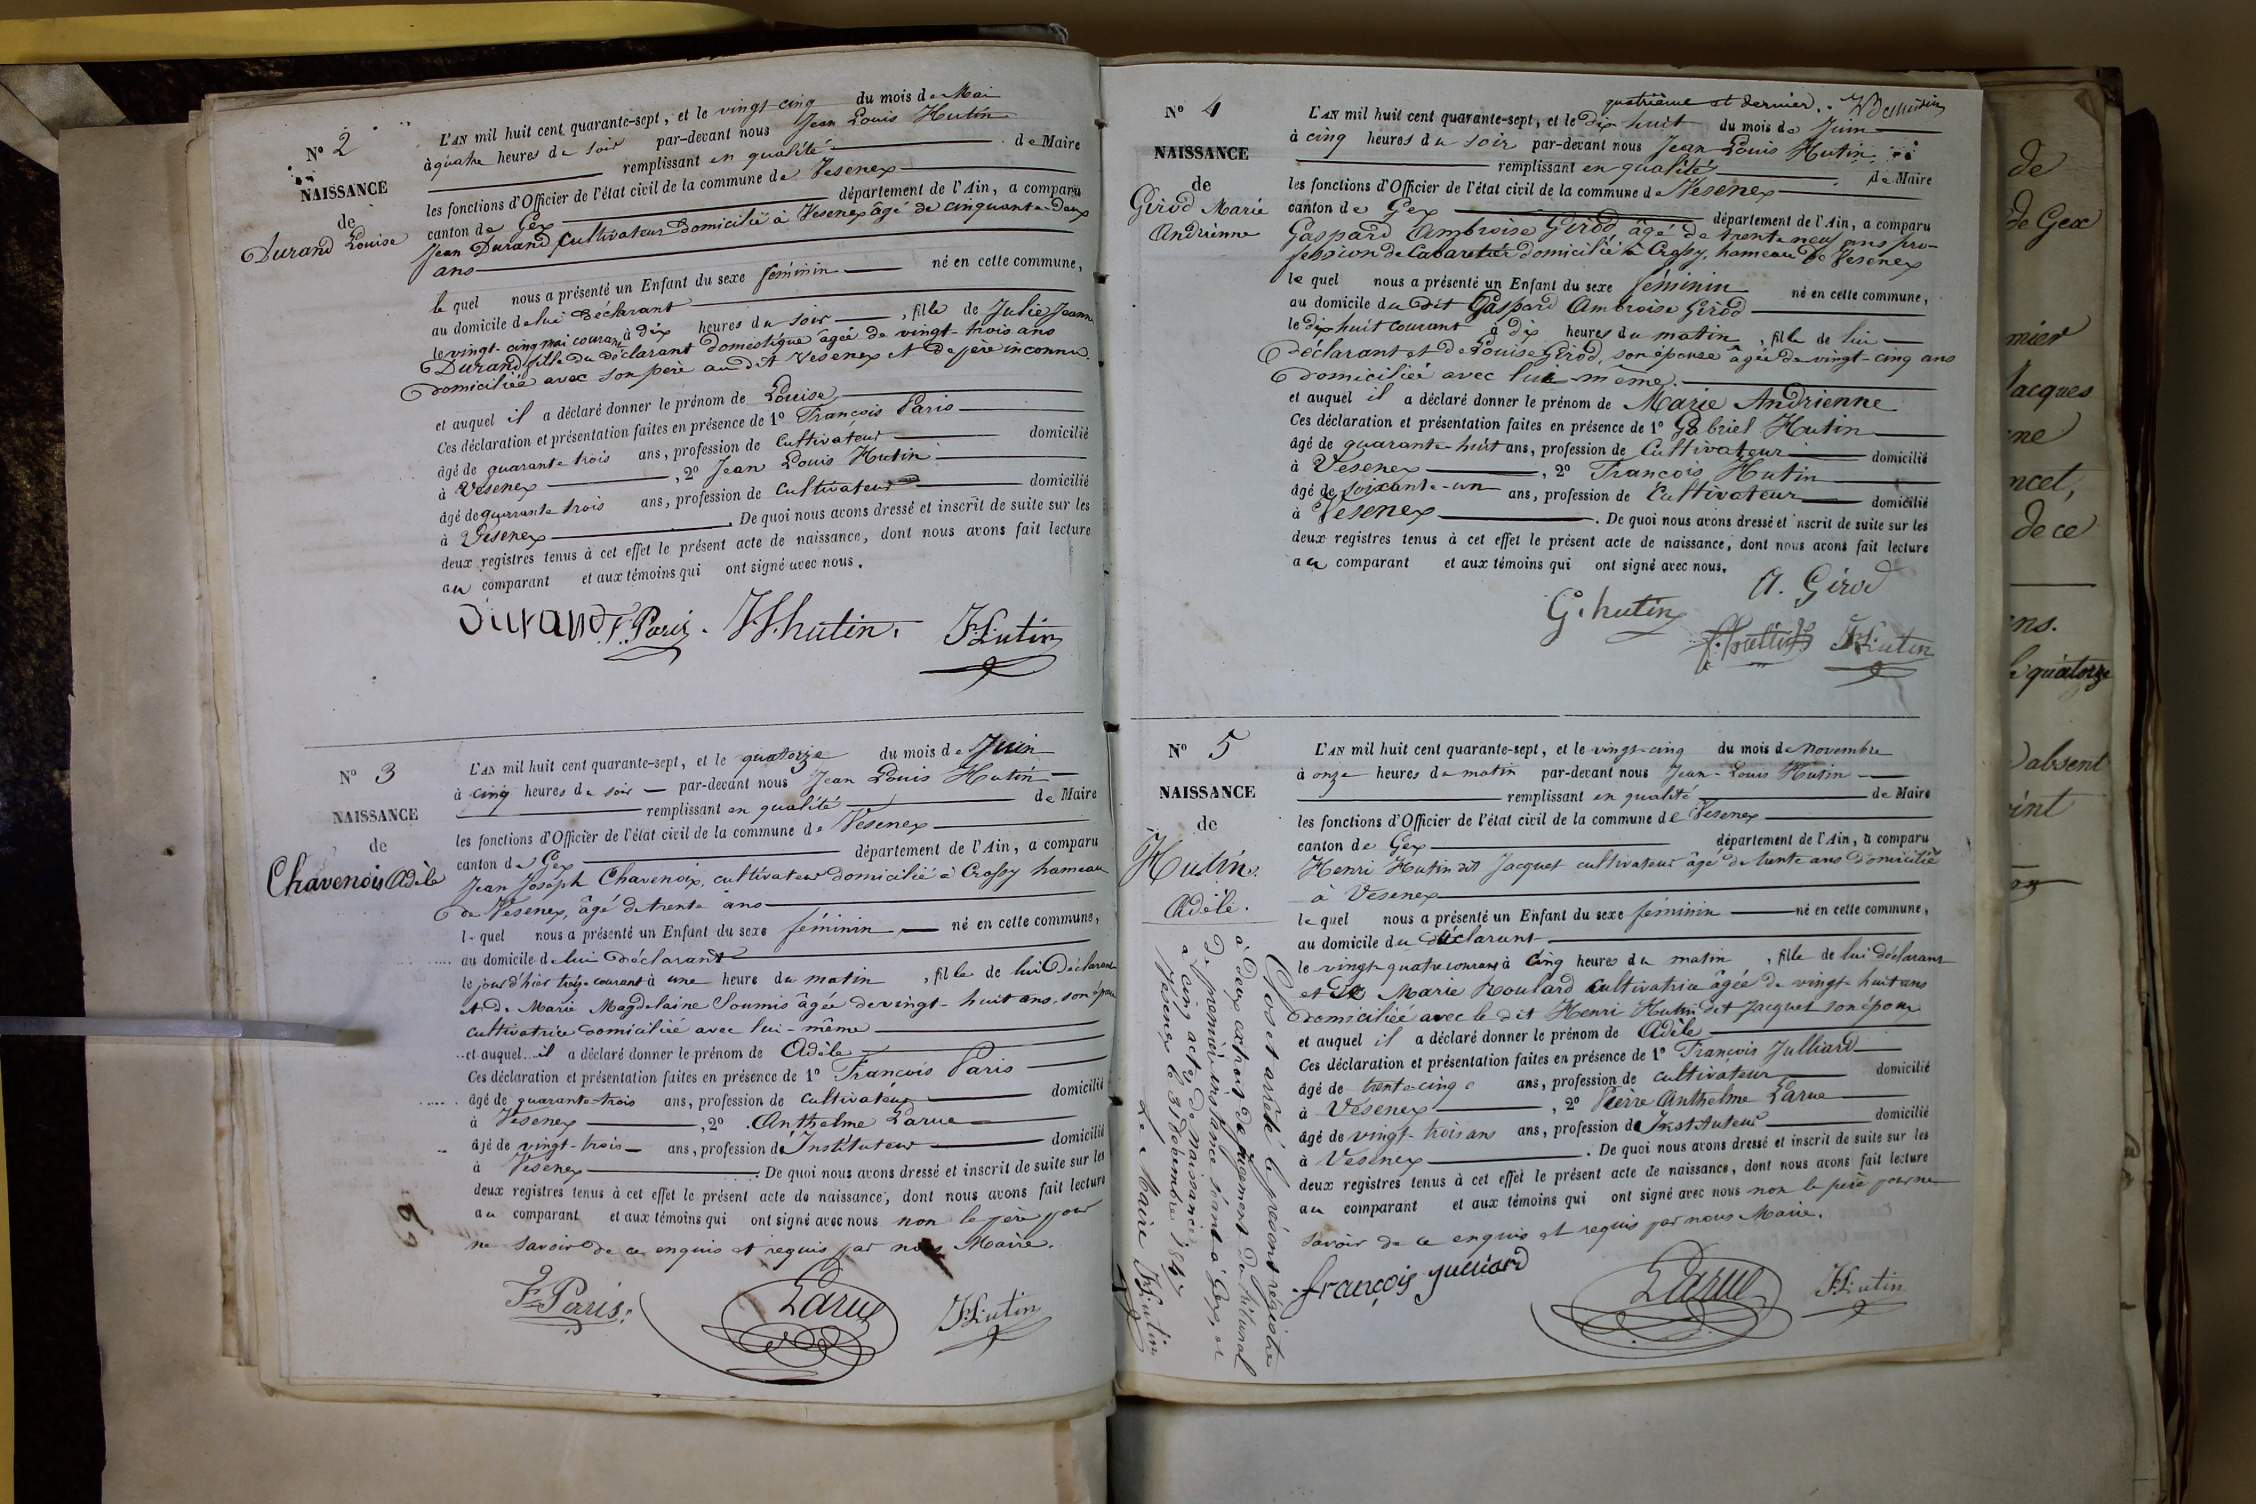 N° 2
NAISSANCE
de
Durand Louise
L'AN mil huit cent quarante-sept, et le vingt-cinq du mois de Mai
à quatre heures du soir par-devant nous Jean Louis Hutin
remplissant en qualité de Maire
les fonctions d'Officier de l'état civil de la commune de Vesenex
canton de Gex département de l'Ain, a comparu
Jean Durand Cultivateur domicilié à Vesenex âgé de cinquante-deux
ans
le quel nous a présenté un Enfant du sexe féminin né en cette commune,
au domicile de lui déclarant
le vingt-cinq mai courant à dix heures du soir, fille de Julie Jeanne
Durand fille du déclarant domestique âgée de vingt-trois ans
domiciliée avec son père au dit Vesenex et de père inconnu.
et auquel il a déclaré donner le prénom de Louise
Ces déclaration et présentation faites en présence de 1° François Paris
âgé de quarante trois ans, profession de Cultivateur domicilié
à Vesenex, 2° Jean Louis Hutin
âgé de quarante trois ans, profession de Cultivateur domicilié
à Vesenex. De quoi nous avons dressé et inscrit de suite sur les
deux registres tenus à cet effet le présent acte de naissance, dont nous avons fait lecture
au comparant et aux témoins qui ont signé avec nous.
Durand F. Paris. J L hutin. J L utin
N° 3
NAISSANCE
de
Chavenois Adèle
L'AN mil huit cent quarante-sept, et le quatorze du mois de Juin
à cinq heures du soir par-devant nous Jean Louis Hutin
remplissant en qualité de Maire
les fonctions d'Officier de l'état civil de la commune de Vesenex
canton de Gex département de l'Ain, a comparu
Jean Joseph Chavenoix, cultivateur domicilié à Crassy hameau
de Vesenex, âgé de trente ans
le quel nous a présenté un Enfant du sexe féminin né en cette commune,
au domicile de lui déclarant
le jour d'hier treize courant à une heure du matin, fille de lui déclarant
et de Marie Magdelaine Soumis âgée de vingt-huit ans, son épouse
cultivatrice domiciliée avec lui-même
et auquel il a déclaré donner le prénom de Adèle
Ces déclaration et présentation faites en présence de 1° François Paris
âgé de quarante-trois ans, profession de cultivateur domicilié
à Vesenex, 2° Anthelme Larue
âgé de vingt-trois ans, profession d'Instituteur domicilié
à Vesenex. De quoi nous avons dressé et inscrit de suite sur les
deux registres tenus à cet effet le présent acte de naissance, dont nous avons fait lecture
au comparant et aux témoins qui ont signé avec nous non le père pour
ne savoir de ce enquis et requis par nous Maire.
F. Paris. Larue J L utin
N° 4
NAISSANCE
de
Girod Marie
Andrienne
quatrième et dernier.
L'AN mil huit cent quarante-sept, et le dix huit du mois de Juin
à cinq heures du soir par-devant nous Jean Louis Hutin
remplissant en qualité de Maire
les fonctions d'Officier de l'état civil de la commune de Vesenex
canton de Gex département de l'Ain, a comparu
Gaspard Ambroise Girod âgé de trente neuf ans pro-
fession de Cabaretier domicilié à Crassy, hameau de Vesenex
le quel nous a présenté un Enfant du sexe féminin né en cette commune,
au domicile du dit Gaspard Ambroise Girod
le dix huit courant à dix heures du matin, fille de lui
déclarant et de Louise Girod, son épouse âgée de vingt-cinq ans
domiciliée avec lui même.
et auquel il a déclaré donner le prénom de Marie Andrienne
Ces déclaration et présentation faites en présence de 1° Gabriel Hutin
âgé de quarante-huit ans, profession de Cultivateur domicilié
à Vesenex, 2° François Hutin
âgé de soixante-un ans, profession de Cultivateur domicilié
à Vesenex. De quoi nous avons dressé et inscrit de suite sur les
deux registres tenus à cet effet le présent acte de naissance, dont nous avons fait lecture
au comparant et aux témoins qui ont signé avec nous.
A. Girod
G. hutin
J L utin
N° 5
NAISSANCE
de
Hutin
Adèle.
L'AN mil huit cent quarante-sept, et le vingt-cinq du mois de novembre
à onze heures du matin par-devant nous Jean-Louis Hutin
remplissant en qualité de Maire
les fonctions d'Officier de l'état civil de la commune de Vesenex
canton de Gex département de l'Ain, a comparu
Henri Hutin dit Jacquet cultivateur âgé de trente ans domicilié
à Vesenex
le quel nous a présenté un Enfant du sexe féminin né en cette commune,
au domicile du déclarant
le vingt-quatre courant à cinq heures du matin, fille de lui déclarant
et de Marie Roulard cultivatrice âgée de vingt-huit ans
domiciliée avec le dit Henri Hutin dit Jacquet son époux
et auquel il a déclaré donner le prénom de Adèle
Ces déclaration et présentation faites en présence de 1° François Julliard
âgé de trente-cinq ans, profession de cultivateur domicilié
à Vesenex, 2° Pierre Anthelme Larue
âgé de vingt-trois ans ans, profession de Instituteur domicilié
à Vesenex. De quoi nous avons dressé et inscrit de suite sur les
deux registres tenus à cet effet le présent acte de naissance, dont nous avons fait lecture
au comparant et aux témoins qui ont signé avec nous non le père pour ne
savoir de ce enquis et requis par nous Maire.
françois julliard Larue J L utin
Clos et arrêté le présent régistre
à deux extrait de jugement du tribunal
de première instance séant à Gex, et
à cinq actes de naissance.
Vésenex le 31 décembre 1847
Le Maire J L utin
de
de Gex
mier
Jacques
ne
ncel,
de ce
ns.
quatorze
absent
int